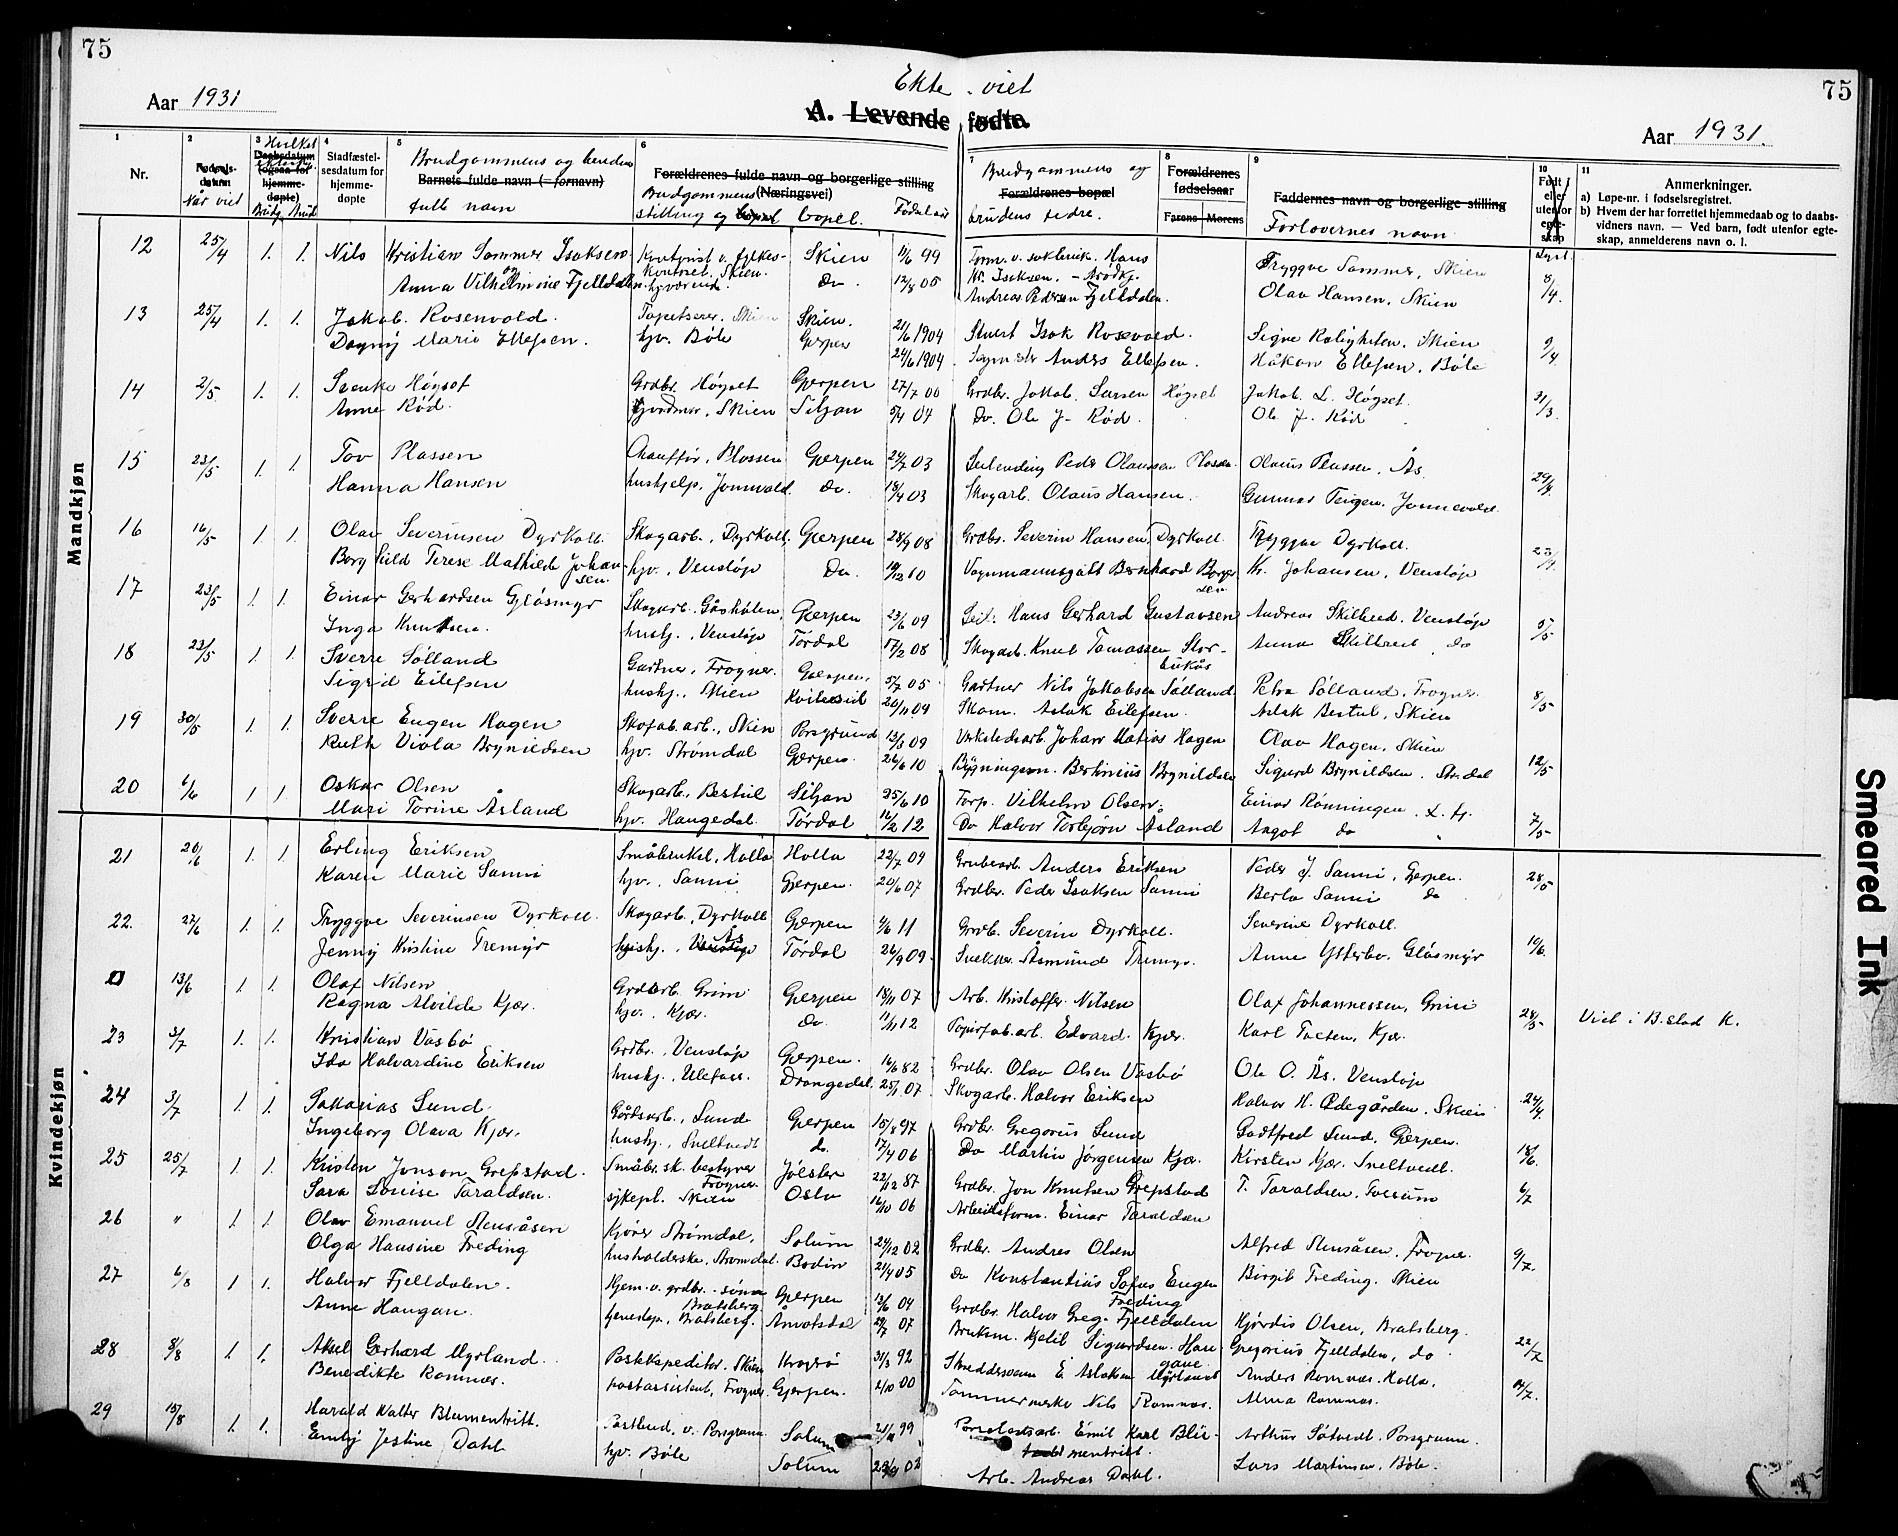 75
75
Ekte viet
Aar 1931
A. Levende fødte.
Aar 1931.
1
Nr.
2
Fødsels-
datum
Når viet
3 Hvilket
Daabsdatum
(ogsaa for
hjemme-
døpte)
Brudg. Brud
4
Stadfæstel-
sesdatum for
hjemme-
døpte
5
Brudgommens og brudens
Barnets fulde navn (= fornavn)
fulle navn
6
Forældrenes fulde navn og borgerlige stilling
(Næringsvei)
Brudgommens
stilling og bopel bopel. Fødselsår
7
Brudgommens og
Forældrenes bopæl
brudens fedre.
8
Forældrenes
fødselsaar
Farens Morens
9
Faddernes navn og borgerlige stilling
Forlovernes navn
10
Født i
eller
utenfor
egte-
skap
Lyst.
11
Anmerkninger.
a) Løpe-nr. i fødselsregistret.
b) Hvem der har forrettet hjemmedaab og to daabs-
vidners navn. — Ved barn, født utenfor egte-
skap, anmelderens navn o. l.
Mandkjøn
12 25/4 1. 1. Nils Kristian Sommer Isaksen Kontorist v. fylkes- kontoret, Skien. Skien 11/6 99 Form. v. Hans Kr. Isaksen. Tryggve Sommer, Skien 8/4.
Anna Vilhelmine Fjelldalen. hjværende. Do 12/8 05 Andreas Pedersen Fjelldalen. Olav Hansen, Skien
13 25/4 1. 1. Jakob Rosenvold. Tapetserer, Skien Skien. 21/6 1904 Stuert Isak Rosevold. Signe Roligheten, Skien 9/4
Dagny Marie Ellefsen. hjv. Bøle Gerpen 24/6 1904 Anders Ellefsen. Håkon Ellefsen, Bøle
14 2/5. 1. 1. Svenke Høgset Grdbr. Høgset Gjerpen 27/7 00 Grdbr. Jakob Larsen Høgset Jakob L. Høgset. 31/3.
Anne Rød. Skien Siljan 5/4 04 Do. Ole J. Rød. Ole J. Rød
15 23/5 1. 1. Tov Plassen Chauffør, Plassen Gjerpen 24/7 03 Peder Olaussen Plassen. Olaus Plassen, Ås. 29/4.
Hanna Hansen hushjelp, Jonnevald. Do. 18/4 03 Skogarb. Olaus Hansen. Gunnar Teigen, Jonnevald.
16 16/5 1. 1. Olav Severinsen Dyrkoll. Skogarb., Dyrkoll, Gjerpen 28/9 08 Grdbr. Severin Hansen, Dyrkoll. Tryggve Dyrkoll. 23/4.
Borghild Terese Mathilde Johan- sen. hjv., Venstøp Do. 19/12 10 Bernhard Borger- sen Kr. Johansen, Venstøp
17 23/5 1. 1. Einar Gerhardsen Gjåsmyr Skogarb. Gåsholen, Gjerpen 23/6 09 Hans Gerhard Gustavsen Andreas Skilbred, Venstøp 5/5
Inga Knutsen. hushj., Venstøp Tørdal 17/2 08 Skogarb. Knut Tomassen Stor- Anna Skilbred, do
18 23/5 1. 1. Sverre Sølland Gartner, Frogner. Gjerpen, 5/7 05 Gartner Nils Jakobsen Sølland Petra Sølland, Frogner. 8/5
Sigrid Eilefsen hushj., Skien Kviteseid 20/11 04 Skom. Aslak Eilefsen. Aslak Bestul, Skien
19 30/5 1. 1. Sverre Eugen Hagen Skofab.arb., Skien Porsgrund 13/3 09 Verkstedsarb. Johan Matias Hagen Olav Hagen, Skien 12/5
Ruth Viola Brynildsen hjv. Strømdal Gjerpen. 26/6 10 Bygningssn. Bertinius Brynildsen Sigurd Brynildsen.
20 6/6 1 1. Oskar Olsen Skogarb., Bestul Siljan 25/6 10 Torp. Vilhelm Olsen. Einar Rønningen, L. Hj. 7/5
Mari Torine Åsland hjv. Haugedal. Tørdal 16/2 12 Do Halvor Torbjørn Åsland Aagot do "
Kvindekjøn
21 20/6 1. 1. Erling Eriksen Småbrukel, Holla Holla 22/7 09 Grubearb. Anders Eriksen Peder J. Sanni, Gjerpen. 28/5
Karen Marie Sanni hjv., Sanni Gjerpen. 20/6 07 Grdbr. Peder Isaksen Sanni Berta Sanni do
22. 27/6 1. 1. Tryggve Severinsen Dyrkoll. Skogarb., Dyrkoll Gjerpen 4/6 11 Grdb. Severin Dyrkoll. Severine Dyrkoll. 10/6.
Jenny Kristine Tremyr hushj., Venstøp Ås Tørdal 26/9 09. Snekker. Åsmund Tremyr. Anne Ytterbø, Gjåsmyr
13/6 1 1. Olaf Nilsen Grdarb. Grini Gjerpen 18/11 07 Arb. Kristoffer Nilsen Olaf Johannessen, Grini 28/5 Viet i B.stad K.
Ragna Alvilde Kjær. hjv., Kjær. do. 11/11 12 Papirfab.arb. Edvard Kjær. Karl Kjær.
23 3/7 1. 1. Kristian Våsbø Grdbr., Venstøp Gjerpen. 16/6 82 Grdbr. Olav Olsen Våsbø Ole O. Ås, Venstøp
Ida Halvardine Eriksen hushj., Ulefoss. Drangedal. 25/1 07 Skogarb. Halvor Eriksen Halvor H. Ødegården, Skien 24/4.
24 3/7 1. 1. Sakarias Lund. Gårdsarb., Lund Gjerpen 15/8 97 Grdbr. Gregorius Lund Godtfred Lund, Gjerpen. 18/6.
Ingeborg Olava Kjær. hushj., Sneltvedt do. 17/4 06 Do Martin Jørgensen Kjær. Kirsten Kjær. Sneltvedt.
25 25/7 1. 1. Kristen Jonson Grepstad. Småbr.sk.bestyrer Frogner. Jølster 22/12 87 Grdbr. Jon Knutsen Grepstad T. Taraldsen, Fossum 6/7
Sara Louise Taraldsen. sykepl. Skien Oslo 16/10 06 Arbeidsform. Einar Taraldsen
26 " 1. 1. Olav Emanuel Stensåsen Kjører Strømdal, Solum 24/12 02 Grdbr. Andres Olsen Alfred Stensåsen, Frogner. 9/7.
Olga Hansine Freding husholderske, Strømdal. Bodin 21/4 05 Do Konstantius Sofus Eugen Freding Birgit Freding. Skien
27 6/8 1 1. Halvor Fjelldalen. Hjem. v. grdbr. -sønn Bratsberg Gjerpen 13/6 04 Grdbr. Halvor Greg. Fjelldalen Hjørdis Olsen, Bratsberg. 22/7
Anne Haugan. Bratsberg. Åmotsdal 29/7 07 Bruksm. Kjetil Sigurdsen Hau- gane Gregorius Fjelldalen, do
28 8/8 1. 1. Aksel Gerhard Myrland. Postekspeditør, Skien Kragerø 31/3 92 Skreddersvenn E. Aslaksen Myrland Anders Romnæs, Holla, 14/7.
Benedikte Romnæs. postassistent, Frogner. Gjerpen. 2/10 00 Tømmermerker Nils Romnæs. Alma Romnæs.
29 15/8 1. 1. Harald Walter Blumentritt. Postbud, v. Porsgrunn Solum 21/11 99 Emil Karl Blu- mentritt. Arthur Søtvedt, Porsgrunn.
Emly Jestine Dahl hjv. Bøle Solum 02 Arb. Andreas Dahl. Lars Martinsen, Bøle.
Smeared Ink